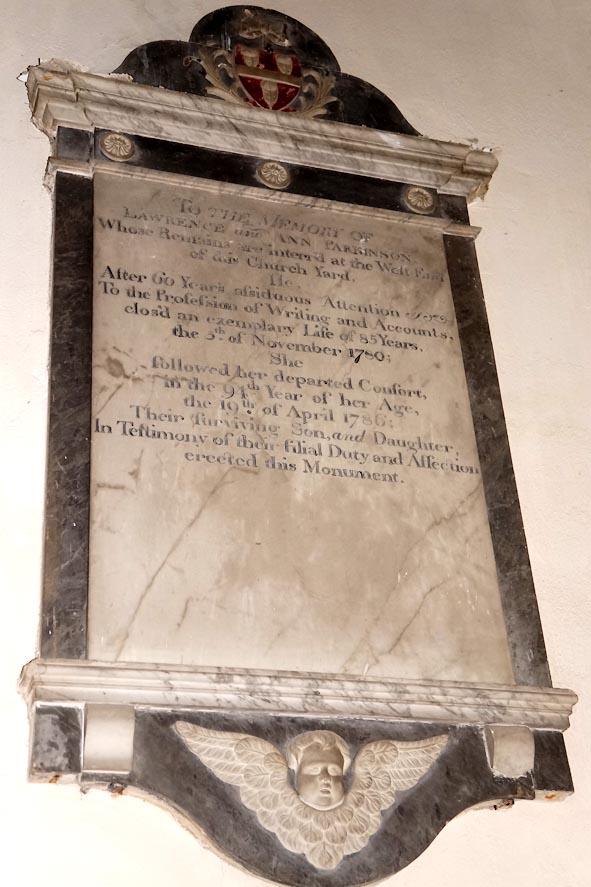 To THE MEMORY OF
LAWRENCE and ANN PARKINSON,
Whose Remains are interr'd at the West End
of this Church Yard.
He
After 60 Years assiduous Attention
To the Profession of Writing and Accounts,
clos'd an exemplary Life of 85 Years,
the 5th. of November 1780;
She
followed her departed Consort,
in the 94th Year of her Age,
the 19th. of April 1786;
Their surviving Son, and Daughter;
In Testimony of their filial Duty and Affection
erected this Monument.